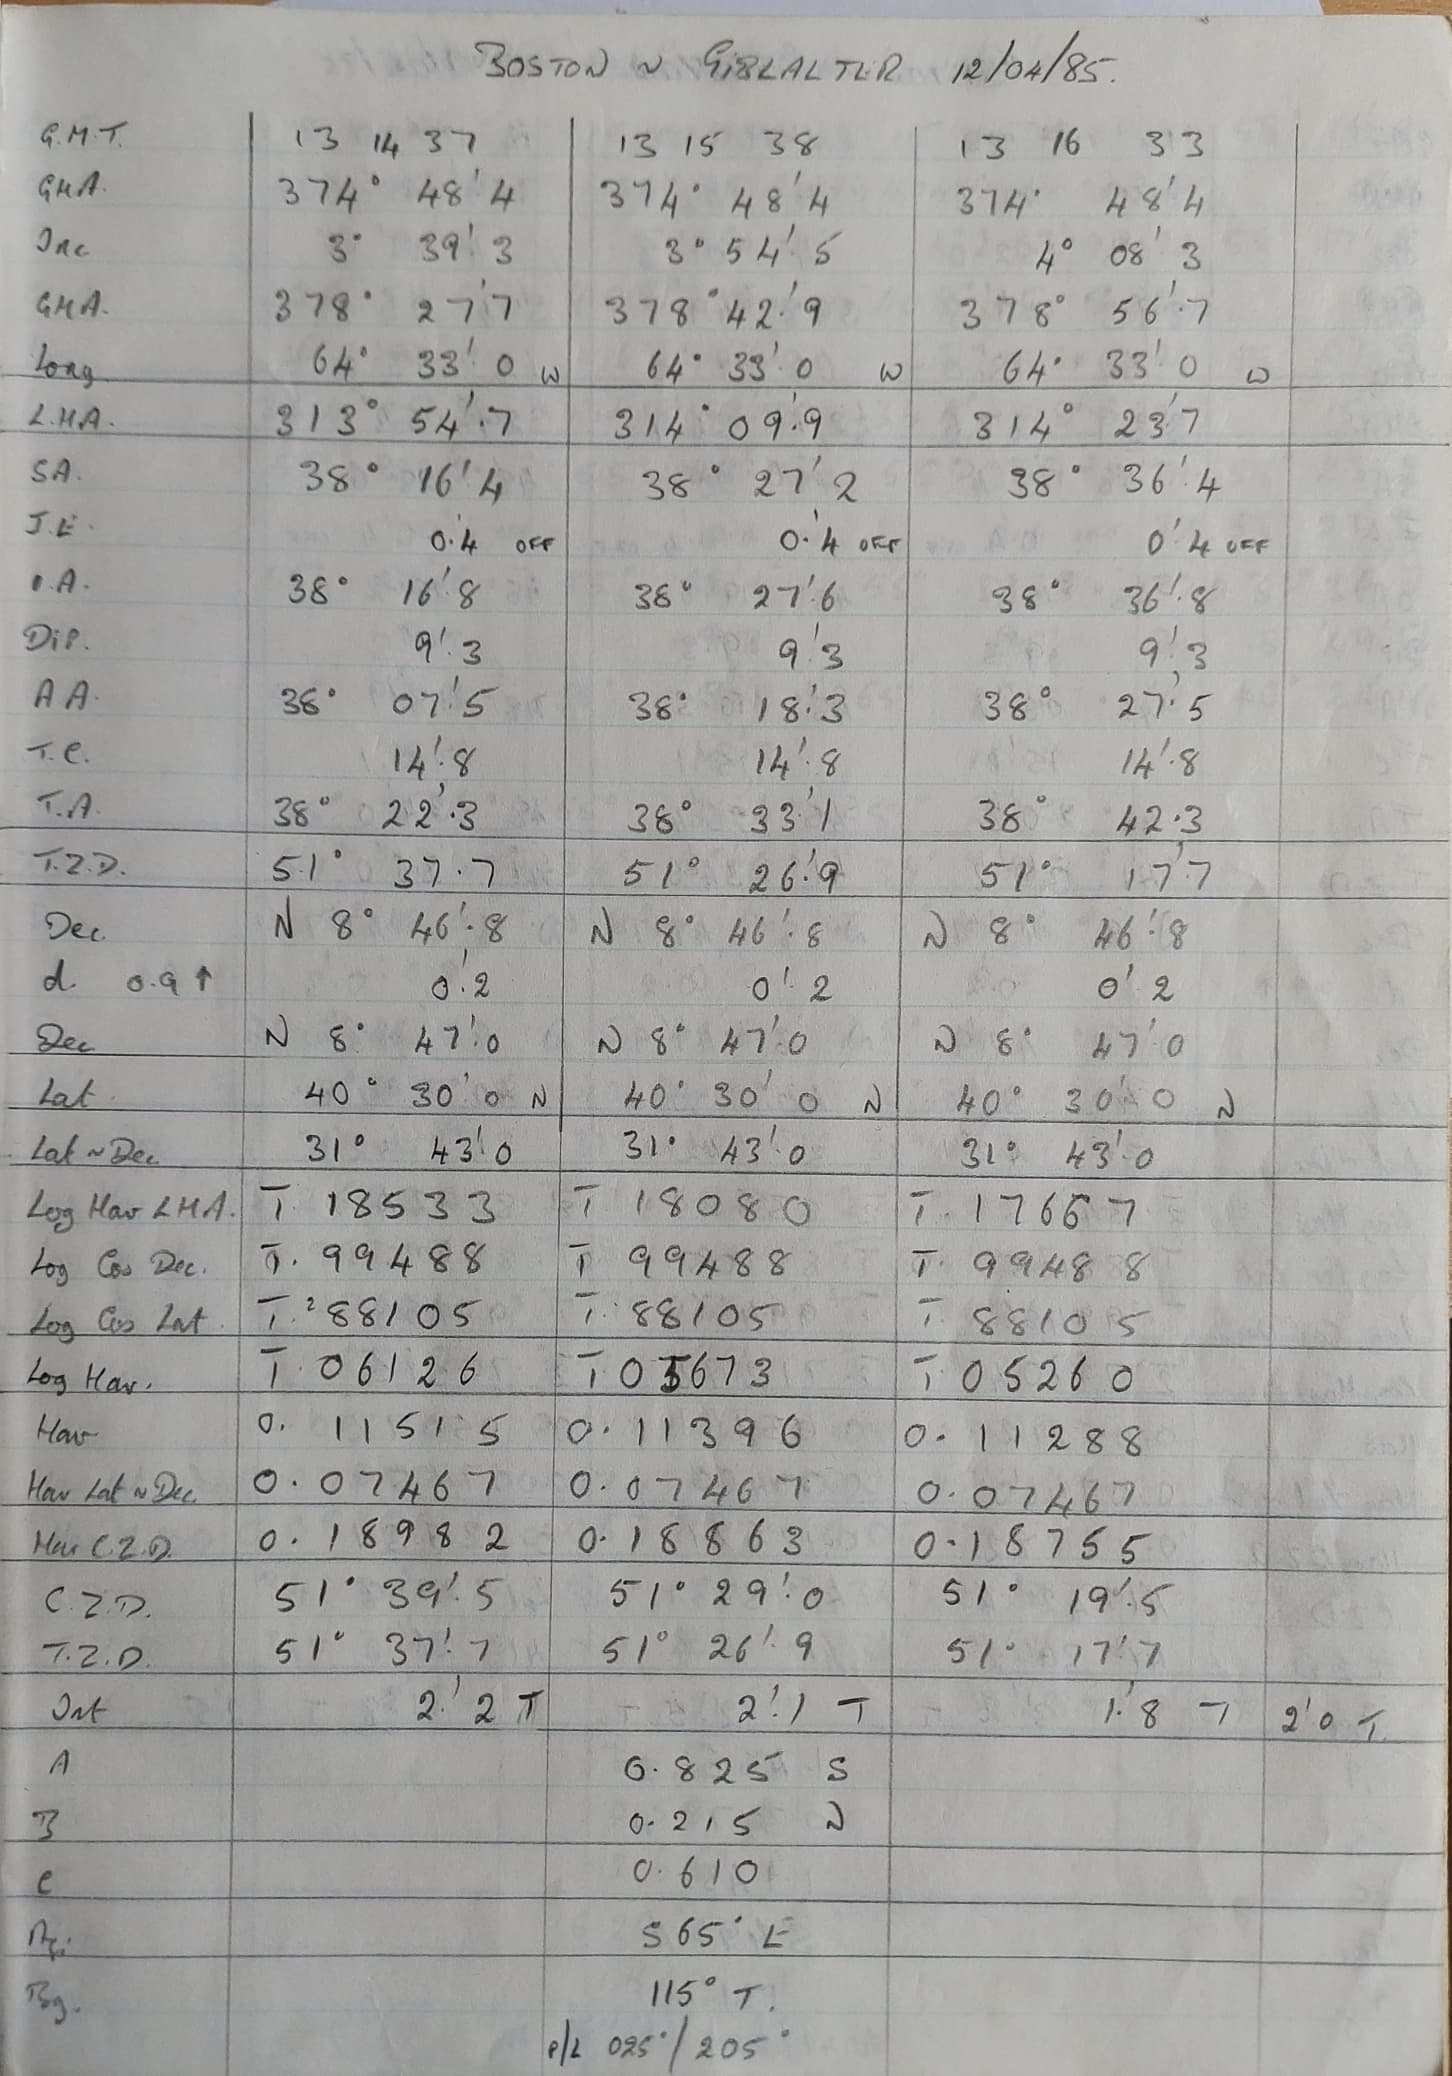 BOSTON ~ GIBLALTER 12/04/85.
G.M.T. 13 14 37 13 15 38 13 16 33
GHA. 374° 48'4 374° 48'4 374° 48'4
Inc 3° 39'.3 3° 54'.5 4° 08'3
GHA. 378° 27'.7 378° 42'.9 378° 56'.7
Long 64° 33'0 W 64° 33'0 W 64° 33'0 W
L.H.A. 313° 54'.7 314° 09'.9 314° 23'7
SA. 38° 16'4 38° 27'2 38° 36'.4
I.E. 0.4 OFF 0'.4 OFF 0'4 OFF
O.A. 38° 16'.8 38° 27'.6 38° 36'.8
DIP. 9'.3 9'.3 9'.3
A A. 38° 07'.5 38° 18'.3 38° 27'.5
T.C. 14'.8 14'.8 14'.8
T.A. 38° 22'.3 38° 33'1 38° 42.3
T.Z.D. 51° 37.7 51° 26'.9 51° 17'7
Dec. N 8° 46'.8 N 8° 46'.8 N 8° 46'.8
d. 0.9 ↑ 0'.2 0'.2 0'2
Dec N 8° 47'.0 N 8° 47'0 N 8° 47'0
Lat. 40° 30'0 N 40° 30'0 N 40° 30'0 N
Lat ~ Dec 31° 43'0 31° 43'0 31° 43'0
Log Hav LHA. T. 18533 T 18080 T. 17667
Log Cos Dec. T. 99488 T 99488 T. 99488
Log Cos Lat. T. 88105 T. 88105 T. 88105
Log Hav. T. 06126 T 05673 T 05260
Hav 0. 11515 0.11396 0.11288
Hav Lat ~ Dec. 0.07467 0.07467 0.07467
Hav C.Z.D. 0.18982 0.18863 0.18755
C.Z.D. 51° 39'.5 51° 29'.0 51° 19'.5
T.Z.D. 51° 37'.7 51° 26'.9 51° 17'7
Int 2.'2 T 2'.1 T 1'.8 T 2'0 T.
A 0.825 S
B 0.215 N
C 0.610
Az. S 65° E
Bg. 115° T.
P/L 025°/205°